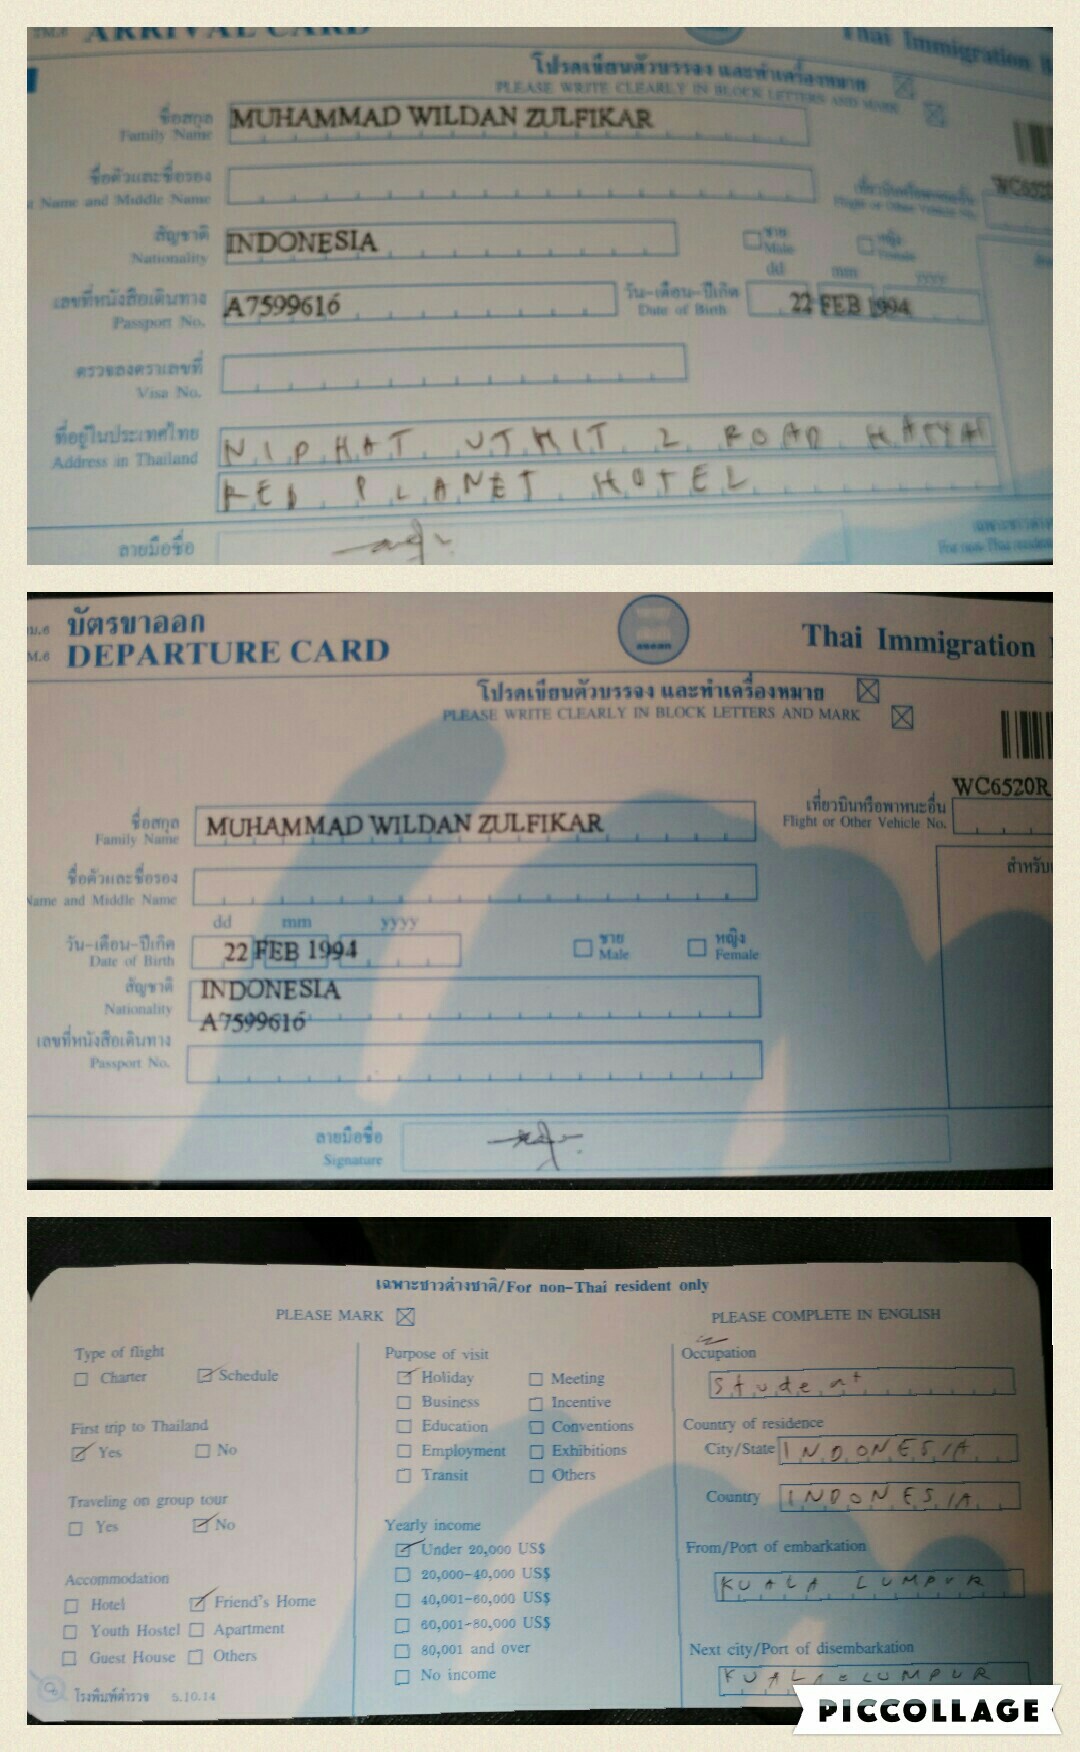 TM.6 ARRIVAL CARD
Thai Immigration
โปรดเขียนตัวบรรจง และทำเครื่องหมาย
PLEASE WRITE CLEARLY IN BLOCK LETTERS AND MARK
ชื่อสกุล
Family Name
MUHAMMAD WILDAN ZULFIKAR
ชื่อตัวและชื่อรอง
Name and Middle Name
เที่ยวบินหรือพาหนะอื่น
Flight or Other Vehicle No.
WC6520
สัญชาติ
Nationality
INDONESIA
ชาย
Male
หญิง
Female
เลขที่หนังสือเดินทาง
Passport No.
A7599616
วัน-เดือน-ปีเกิด
Date of Birth
dd mm yyyy
22 FEB 1994
ตรวจลงตราเลขที่
Visa No.
ที่อยู่ในประเทศไทย
Address in Thailand
NIPHAT UTHIT 2 ROAD HATYAI
RED PLANET HOTEL
ลายมือชื่อ
ม.6 บัตรขาออก
M.6 DEPARTURE CARD
asean
Thai Immigration
โปรดเขียนตัวบรรจง และทำเครื่องหมาย
PLEASE WRITE CLEARLY IN BLOCK LETTERS AND MARK
WC6520R
เที่ยวบินหรือพาหนะอื่น
Flight or Other Vehicle No.
ชื่อสกุล
Family Name
MUHAMMAD WILDAN ZULFIKAR
ชื่อตัวและชื่อรอง
Name and Middle Name
สำหรับ
dd mm yyyy
วัน-เดือน-ปีเกิด
Date of Birth
22 FEB 1994
ชาย
Male
หญิง
Female
สัญชาติ
Nationality
INDONESIA
A7599616
เลขที่หนังสือเดินทาง
Passport No.
ลายมือชื่อ
Signature
เฉพาะชาวต่างชาติ/For non-Thai resident only
PLEASE MARK
PLEASE COMPLETE IN ENGLISH
Type of flight
Charter Schedule
First trip to Thailand
Yes No
Traveling on group tour
Yes No
Accommodation
Hotel Friend's Home
Youth Hostel Apartment
Guest House Others
โรงพิมพ์ตำรวจ 5.10.14
Purpose of visit
Holiday Meeting
Business Incentive
Education Conventions
Employment Exhibitions
Transit Others
Yearly income
Under 20,000 US$
20,000-40,000 US$
40,001-60,000 US$
60,001-80,000 US$
80,001 and over
No income
Occupation
Student
Country of residence
City/State INDONESIA
Country INDONESIA
From/Port of embarkation
KUALA LUMPUR
Next city/Port of disembarkation
KUALA LUMPUR
PICCOLLAGE